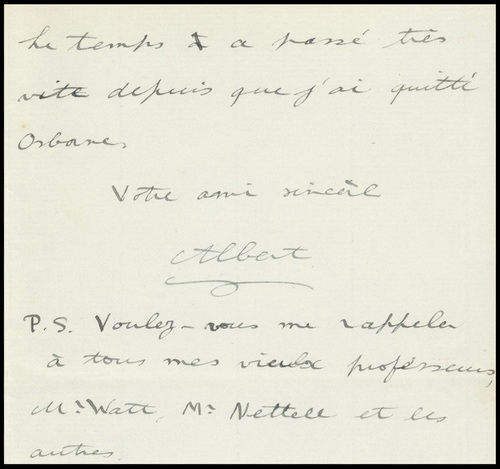 Le temps à a passé très
vite depuis que j'ai quitté
Osborne.
Votre ami sincère
Albert
P.S. Voulez-vous me rappeler
à tous mes vieux professeurs,
Mr Watt, Mr Nettell et les
autres.